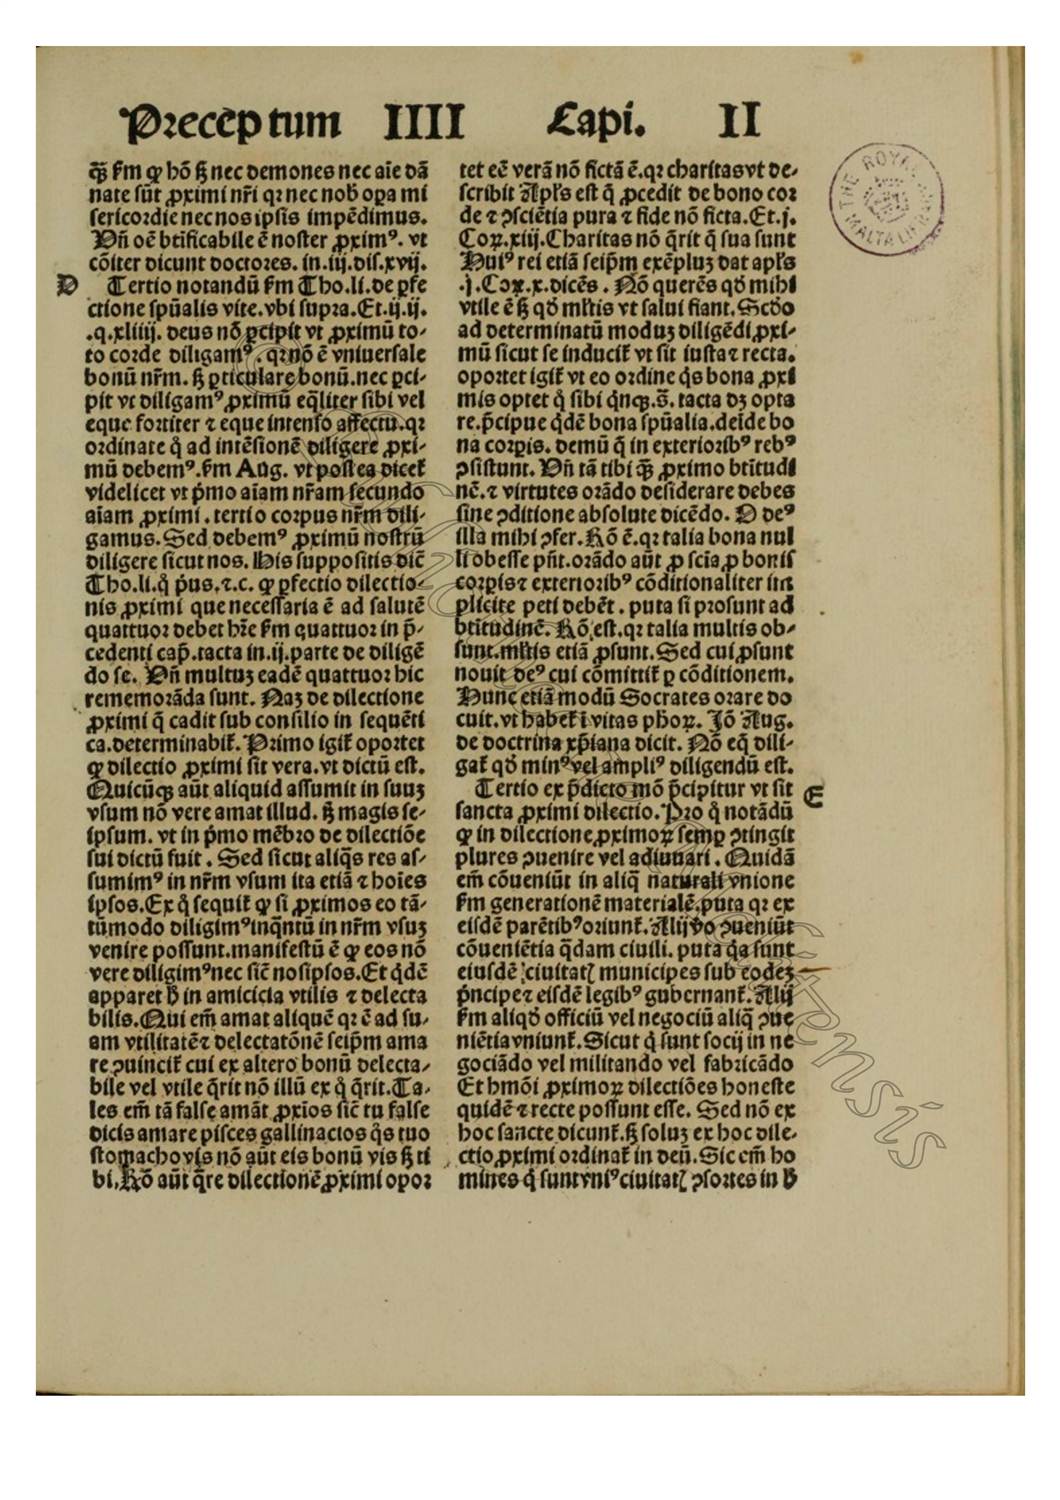 Preceptum IIII Capi. II
q̄ꝫ ſm ꝙ hō ſꝫ nec demones nec aīe dā
nate ſūt ꝓximi nr̄i qꝛ nec nob̄ oꝑa mi
ſericordie nec nos ipſis impēdimus.
Vn̄ oē btificabile ē noſter ꝓximꝰ. vt
cōiter dicunt doctores. in.iij.diſ.xvij.
D Tertio notandū ſm Tho.li.de ꝑfe
ctione ſpūalis vite.vbi ſupra.Et.ij.ij.
.q.xliiij. deus nō p̄cipit vt ꝓximū to-
to corde diligamꝰ. qꝛ nō ē vniuerſale
bonū nr̄m. ſꝫ ꝑticulare bonū.nec p̄ci-
pit vt diligamꝰ ꝓximū eq̄liter ſibi vel
eque fortiter ⁊ eque intenſo affectu.qꝛ
ordinate q̊ ad intēſionē diligere ꝓxi-
mū debemꝰ.ſm Aug. vt poſtea dicet̄
videlicet vt p̄mo aīam nr̄am ſecundo
aīam ꝓximi. tertio corpus nr̄m dili-
gamus. Sed debemꝰ ꝓximū noſtrū
diligere ſicut nos. His ſuppoſitis dic̄
Tho.li.q̊ p̄us.⁊.c. ꝙ ꝑfectio dilectio-
nis ꝓximi que neceſſaria ē ad ſalutē
quattuor debet hr̄e ſm quattuor in p̄-
cedenti cap̄.tacta in.ij.parte de diligē
do ſe. Vn̄ multuꝫ eadē quattuor hic
rememorāda ſunt. Naꝫ de dilectione
ꝓximi q̄ cadit ſub conſilio in ſequēti
ca.determinabit̄. Primo igit̄ oportet
ꝙ dilectio ꝓximi ſit vera.vt dictū eſt.
Quicūqꝫ aūt aliquid aſſumit in ſuuꝫ
vſum nō vere amat illud. ſꝫ magis ſe-
ipſum. vt in p̄mo mēbro de dilectiōe
ſui dictū fuit. Sed ſicut aliq̄s res aſ-
ſumimꝰ in nr̄m vſum ita etiā ⁊ hoīes
ipſos.Ex q̊ ſequit̄ ꝙ ſi ꝓximos eo tā-
tūmodo diligimꝰ inq̄ntū in nr̄m vſuꝫ
venire poſſunt.manifeſtū ē ꝙ eos nō
vere diligimꝰ nec ſic̄ noſipſos. Et q̇dē
apparet h̄ in amicicia vtilis ⁊ delecta
bilis. Qui em̄ amat aliquē qꝛ ē ad ſu-
am vtilitatē ⁊ delectatōnē ſeip̄m ama
re ꝯuincit̄ cui ex altero bonū delecta-
bile vel vtile q̄rit nō illū ex q̊ q̄rit. Ta-
les em̄ tā falſe amāt ꝓxīos ſic̄ tu falſe
dicis amare piſces gallinacios q̊s tuo
ſtomacho vis nō aūt eis bonū vis ſꝫ ti
bi. Rō aūt q̄re dilectionē ꝓximi opor
tet eē verā nō fictā ē.qꝛ charitas vt de-
ſcribit Apl̄s eſt q̄ ꝓcedit de bono cor
de ⁊ ꝯſciētia pura ⁊ fide nō ficta. Et.j.
Coꝝ.xiij. Charitas nō q̄rit q̄ ſua ſunt
Huiꝰ rei etiā ſeip̄m exēpluꝫ dat apl̄s
.j. Coꝝ.x. dicēs. Nō querēs qd̄ mihi
vtile ē ſꝫ qd̄ ml̄tis vt ſalui fiant. Scd̄o
ad determinatū moduꝫ diligēdi ꝓxi-
mū ſicut ſe inducit̄ vt ſit iuſta ⁊ recta.
oportet igit̄ vt eo ordine q̊s bona ꝓxi
mis optet q̊ ſibi q̇nqꝫ.s̄. tacta dꝫ opta
re.p̄cipue q̇dē bona ſpūalia.deīde bo
na corꝑis. demū q̄ in exteriorībꝰ rebꝰ
ꝯſiſtunt. Vn̄ tā tibi q̄ꝫ ꝓximo btītudi
nē.⁊ virtutes orādo deſiderare debes
ſine ꝯditione abſolute dicēdo. O deꝰ
illa mihi ꝯfer. Rō ē.qꝛ talia bona nul
li obeſſe pn̄t.orādo aūt ꝓ ſcīa ꝓ bonis
corꝑis ⁊ exterioribꝰ cōditionaliter im
plicite peti debēt. puta ſi proſunt ad
btītudinē. Rō.eſt.qꝛ talia multis ob-
ſunt.ml̄tis etiā ꝓſunt. Sed cui ꝓſunt
nouit deꝰ cui cōmittit̄ ꝑ cōditionem.
Hunc etiā modū Socrates orare do
cuit.vt habet̄ ī vitas ph̄oꝝ. Iō Aug.
de doctrina xp̄iana dicit. Nō eq̄ dili-
gat̄ qd̄ minꝰ vel ampliꝰ diligendū eſt.
Tertio ex p̄dicto mō p̄cipitur vt ſit E
ſancta ꝓximi dilectio. Pro q̊ notādū
ꝙ in dilectione ꝓximoꝝ ſemꝑ ꝯtingit
plures ꝯuenire vel adiuuari. Quidā
em̄ cōueniūt in aliq̄ naturali vnione
ſm generationē materialē.puta qꝛ ex
eiſdē parētibꝰ oriunt̄. Alij v̄o ꝯueniūt
cōueniētia q̄dam ciuili. puta q̇a ſunt
eiuſdē ciuitatꝭ municipes ſub eodeꝫ
p̄ncipe ⁊ eiſdē legibꝰ gubernant̄. Alij
ſm aliqd̄ officiū vel negociū aliq̄ ꝯue
niētia vniunt̄. Sicut q̇ ſunt ſocij in ne
gociādo vel militando vel fabricādo
Et hmōi ꝓximoꝝ dilectiōes honeſte
quidē ⁊ recte poſſunt eſſe. Sed nō ex
hoc ſancte dicunt̄.ſꝫ ſoluꝫ ex hoc dile-
ctio ꝓximi ordinat̄ in deū. Sic em̄ ho
mines q̇ ſunt vniꝰ ciuitatꝭ ꝯſortes in h̄
THE ROYAL MALTA LIBRARY